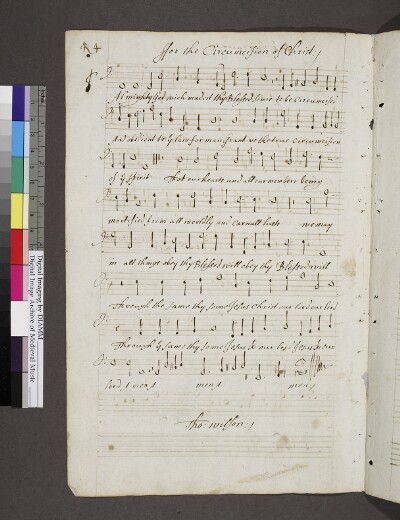 ffor the Circumcision of Christ
Almighty God wich madest thy Blessed sonne to be Circumcise
And obedient to y law for man grant us the true Circumcision
of y spirit That our hearts and all our members being
mortified from all worldly and carnall lusts we may
in all things obey thy Blessed will obey thy Blessed will
Through the same thy sonne Jesus Christ our lord
Through y same thy sonne Jesus X our
lord, Amen, men, men,
Tho: wilson:
Digital Imaging by DIAMM
Digital Image Archive of Medieval Music